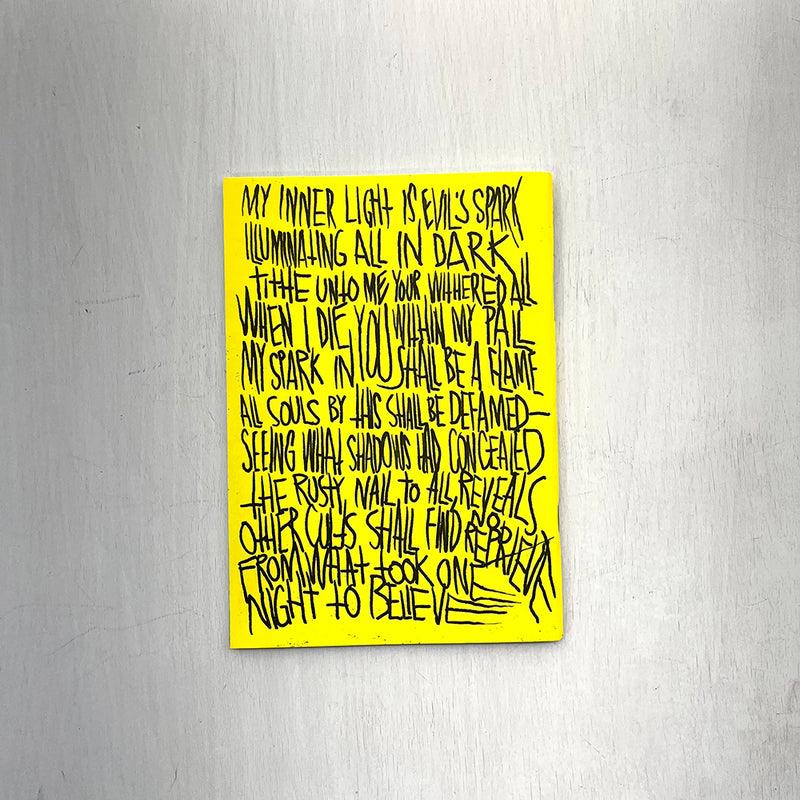 MY INNER LIGHT IS EVIL'S SPARK
ILLUMINATING ALL IN DARK
TITHE UNTO ME YOUR WITHERED ALL
WHEN I DIE, YOU WITHIN MY PALL
MY SPARK IN YOU SHALL BE A FLAME
ALL SOULS BY THIS SHALL BE DEFAMED—
SEEING WHAT SHADOWS HAD CONCEALED
THE RUSTY NAIL TO ALL REVEALS
OTHER CULTS SHALL FIND NO REPRIEVE
FROM WHAT TOOK ONE
NIGHT TO BELIEVE